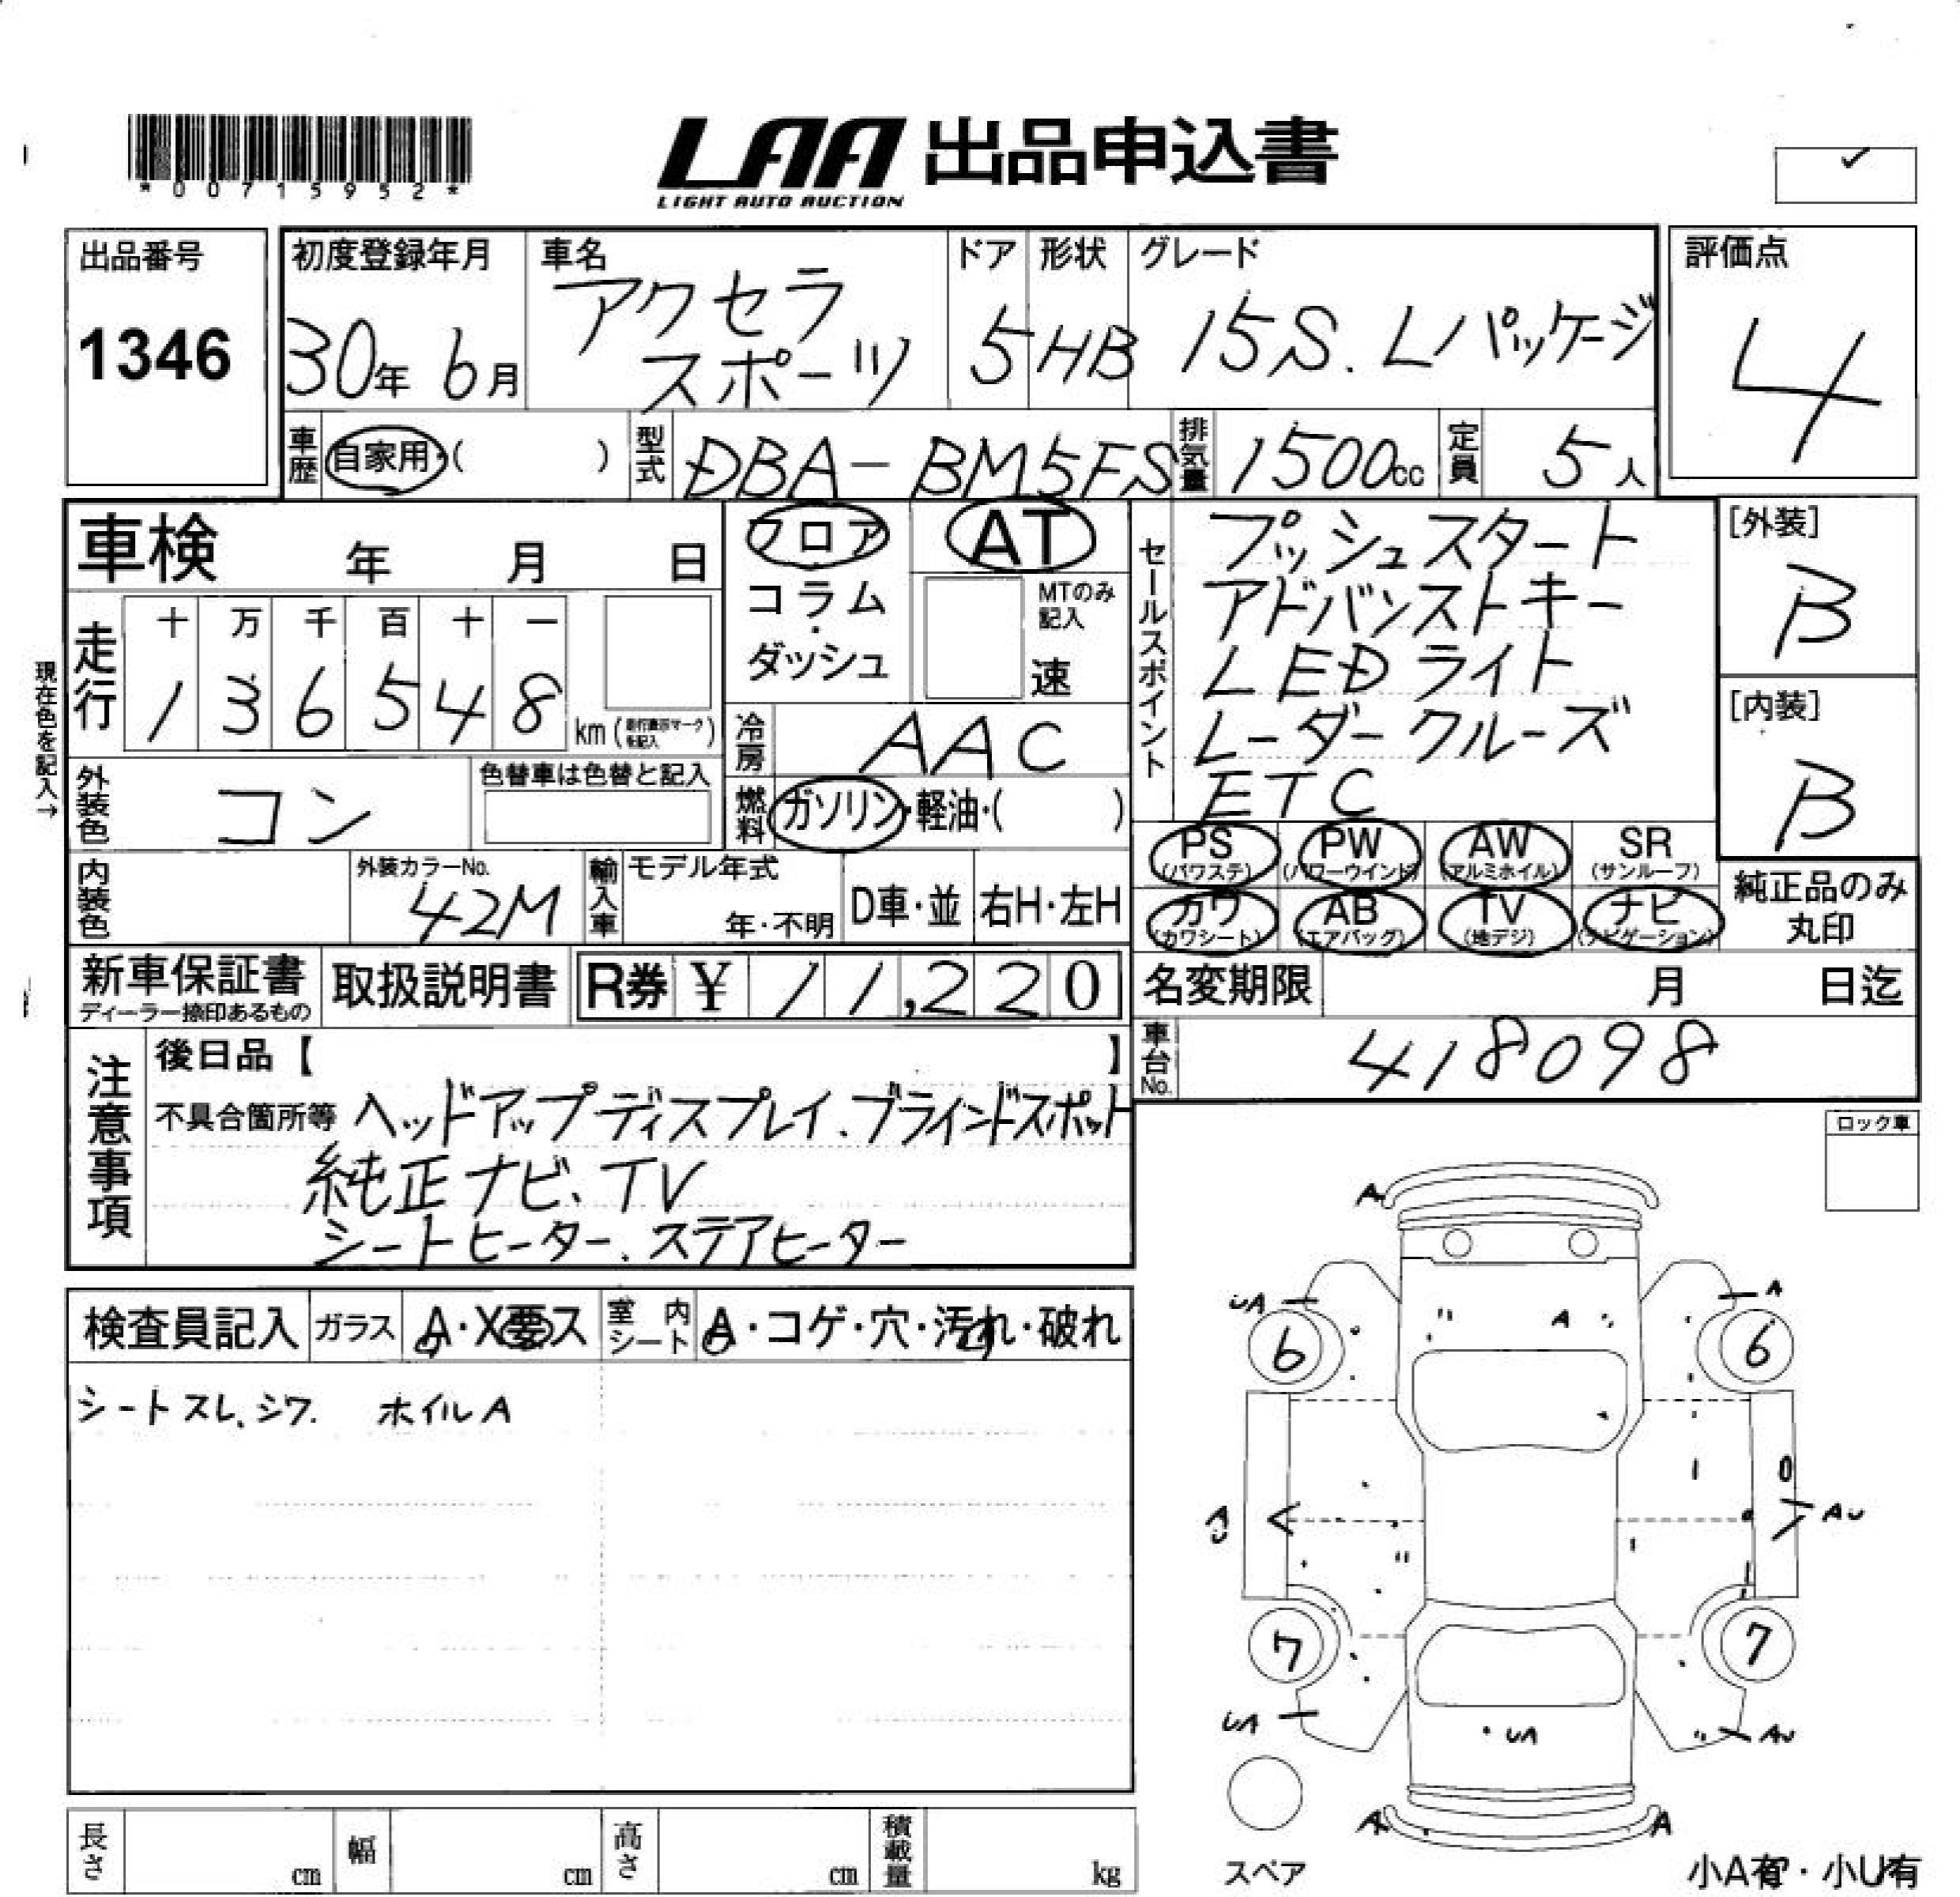 *00715952*
LAA 出品申込書
LIGHT AUTO AUCTION
出品番号
1346
初度登録年月
30年 6月
車名
アクセラ
スポーツ
ドア
5
形状
HB
グレード
15S. Lパッケージ
評価点
4
車歴
自家用・( )
型式
DBA-BM5FS
排気量
1500cc
定員
5人
車検 年 月 日
フロア
コラム
・
ダッシュ
AT
MTのみ
記入
速
セールスポイント
プッシュスタート
アドバンストキー
LEDライト
レーダークルーズ
ETC
[外装]
B
[内装]
B
現在色を記入→
走行
十 万 千 百 十 一
1 3 6 5 4 8
km (走行表示マークを記入)
冷房
AAC
外装色
コン
色替車は色替と記入
燃料
ガソリン・軽油・( )
PS (パワステ)
PW (パワーウインド)
AW (アルミホイル)
SR (サンルーフ)
カワ (カワシート)
AB (エアバッグ)
TV (地デジ)
ナビ (ナビゲーション)
純正品のみ
丸印
内装色
外装カラーNo.
42M
輸入車
モデル年式
年・不明
D車・並
右H・左H
新車保証書
ディーラー捺印あるもの
取扱説明書
R券 ¥ 11,220
名変期限 月 日迄
車台No.
418098
注意事項
後日品【 】
不具合箇所等 ヘッドアップディスプレイ.ブラインドスポット
純正ナビ、TV
シートヒーター.ステアヒーター
ロック車
検査員記入
ガラス
A・X要ス
室内シート
A・コゲ・穴・汚れ・破れ
シートスレ、シワ. ホイルA
A
UA
A
A
6
6
AU
7
7
UA
UA
AU
A
A
スペア
小A有・小U有
長さ cm
幅 cm
高さ cm
積載量 kg